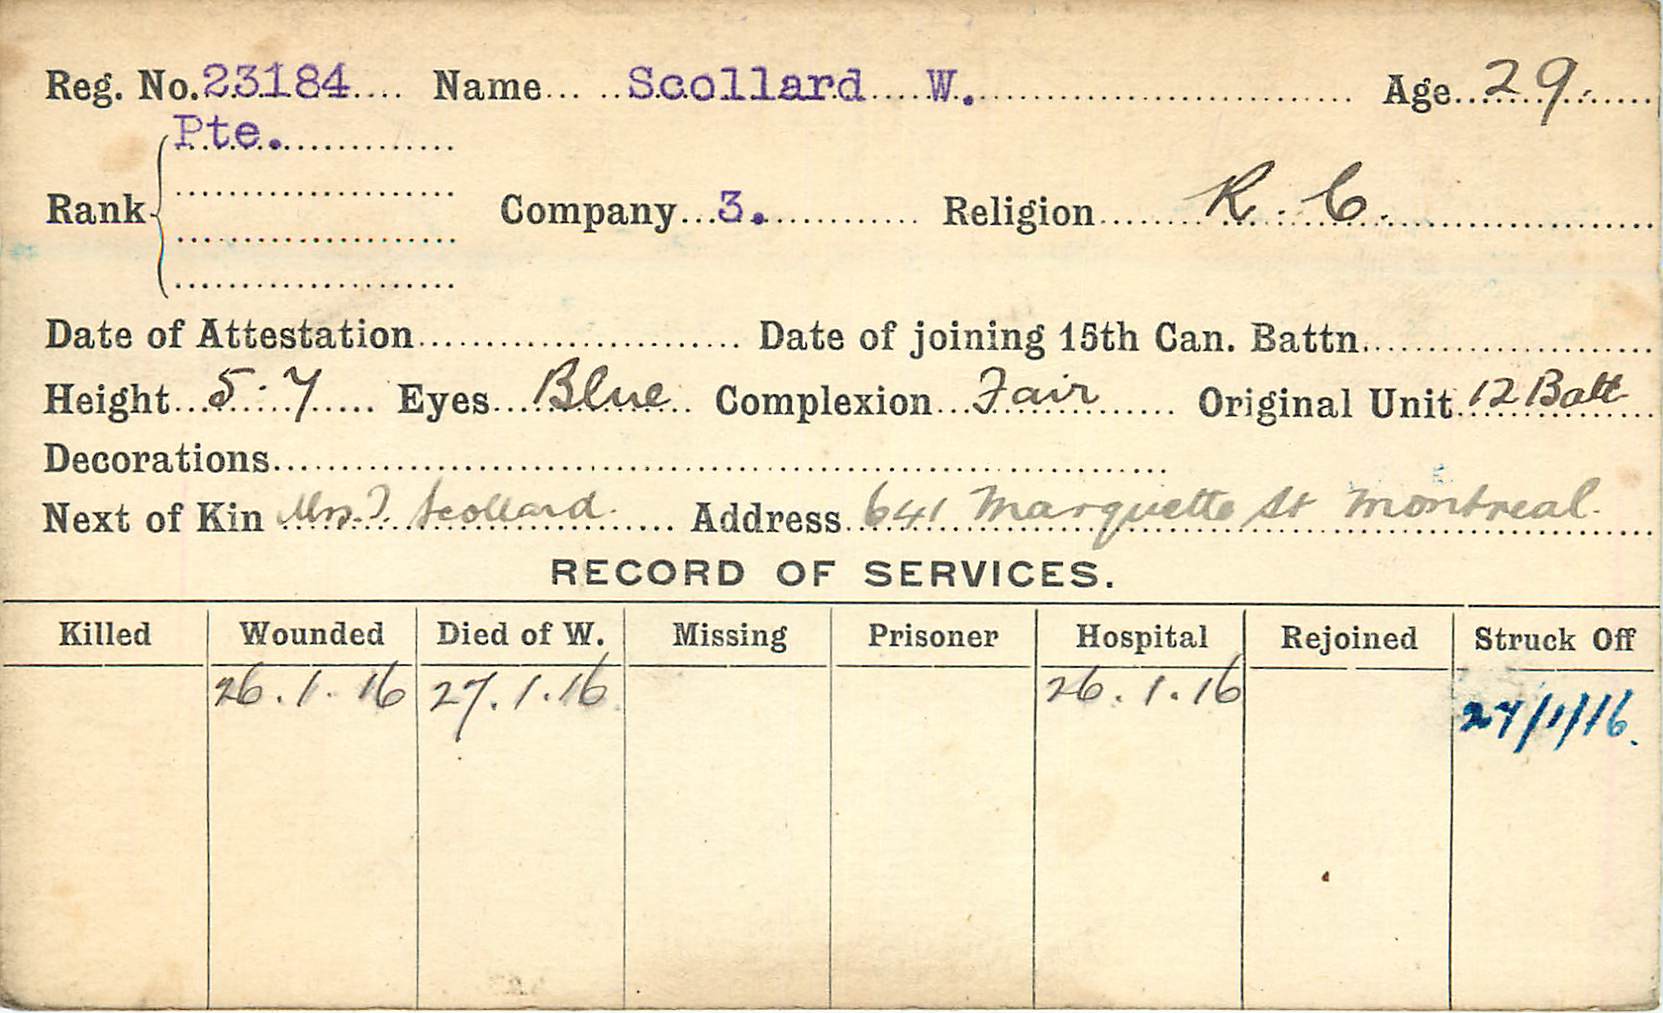 Reg. No. 23184 Name Scollard W. Age 29.
Pte.
Rank Company 3. Religion R. C.
Date of Attestation Date of joining 15th Can. Battn.
Height 5.7 Eyes Blue Complexion Fair Original Unit 12 Batt
Decorations
Next of Kin Mrs. Scollard Address 641 Marquette St Montreal.
RECORD OF SERVICES.
Killed Wounded Died of W. Missing Prisoner Hospital Rejoined Struck Off
26.1.16 27.1.16 26.1.16 27/1/16.